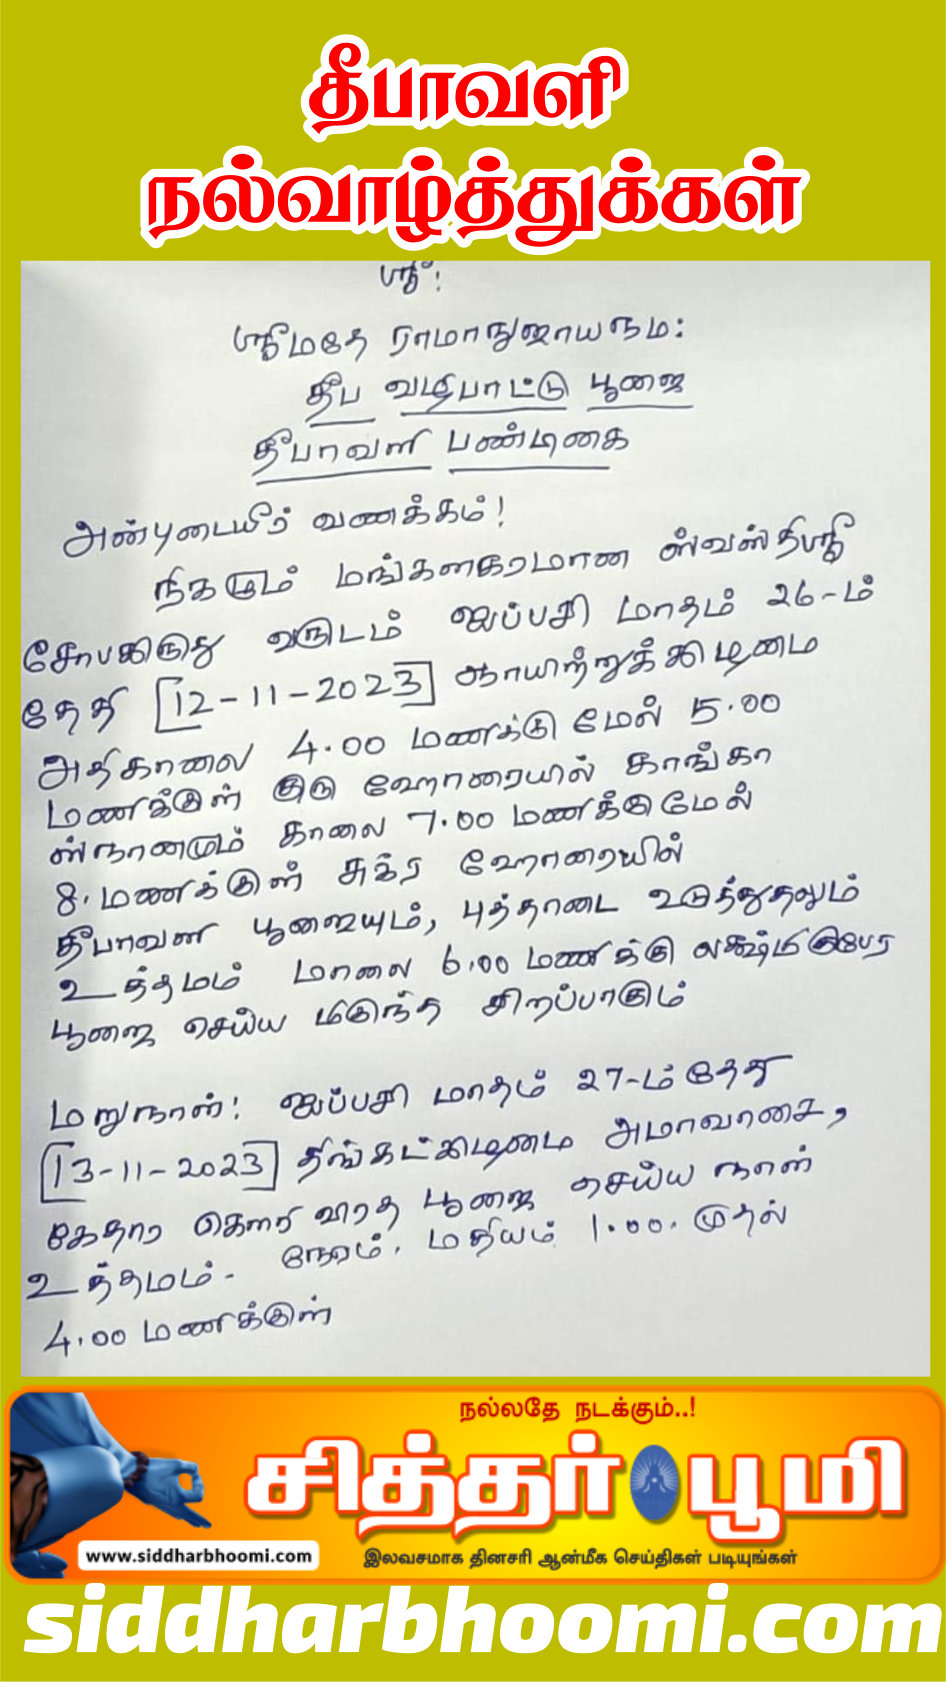 தீபாவளி
நல்வாழ்த்துக்கள்
ஸ்ரீ:
ஸ்ரீமதே ராமாநுஜாய நம:
தீப வழிபாட்டு பூஜை
தீபாவளி பண்டிகை
அன்புடையீர் வணக்கம்!
நிகழும் மங்களகரமான ஸ்வஸ்திஸ்ரீ
சோபகிருது வருடம் ஐப்பசி மாதம் 26-ம்
தேதி [12-11-2023] ஞாயிற்றுக்கிழமை
அதிகாலை 4.00 மணிக்கு மேல் 5.00
மணிக்குள் குரு ஹோரையில் காங்கா
ஸ்நானமும் காலை 7.00 மணிக்குமேல்
8. மணிக்குள் சுக்ர ஹோரையில்
தீபாவளி பூஜையும், புத்தாடை உடுத்துதலும்
உத்தமம் மாலை 6.00 மணிக்கு லக்ஷ்மிகுபேர
பூஜை செய்ய மிகுந்த சிறப்பாகும்
மறுநாள்! ஐப்பசி மாதம் 27-ம் தேதி
[13-11-2023] திங்கட்கிழமை அமாவாசை,
கேதார கௌரி விரத பூஜை செய்ய நாள்
உத்தமம். நேரம். மதியம் 1.00. முதல்
4.00 மணிக்குள்
நல்லதே நடக்கும்..!
சித்தர் பூமி
www.siddharbhoomi.com
இலவசமாக தினசரி ஆன்மீக செய்திகள் படியுங்கள்
siddharbhoomi.com